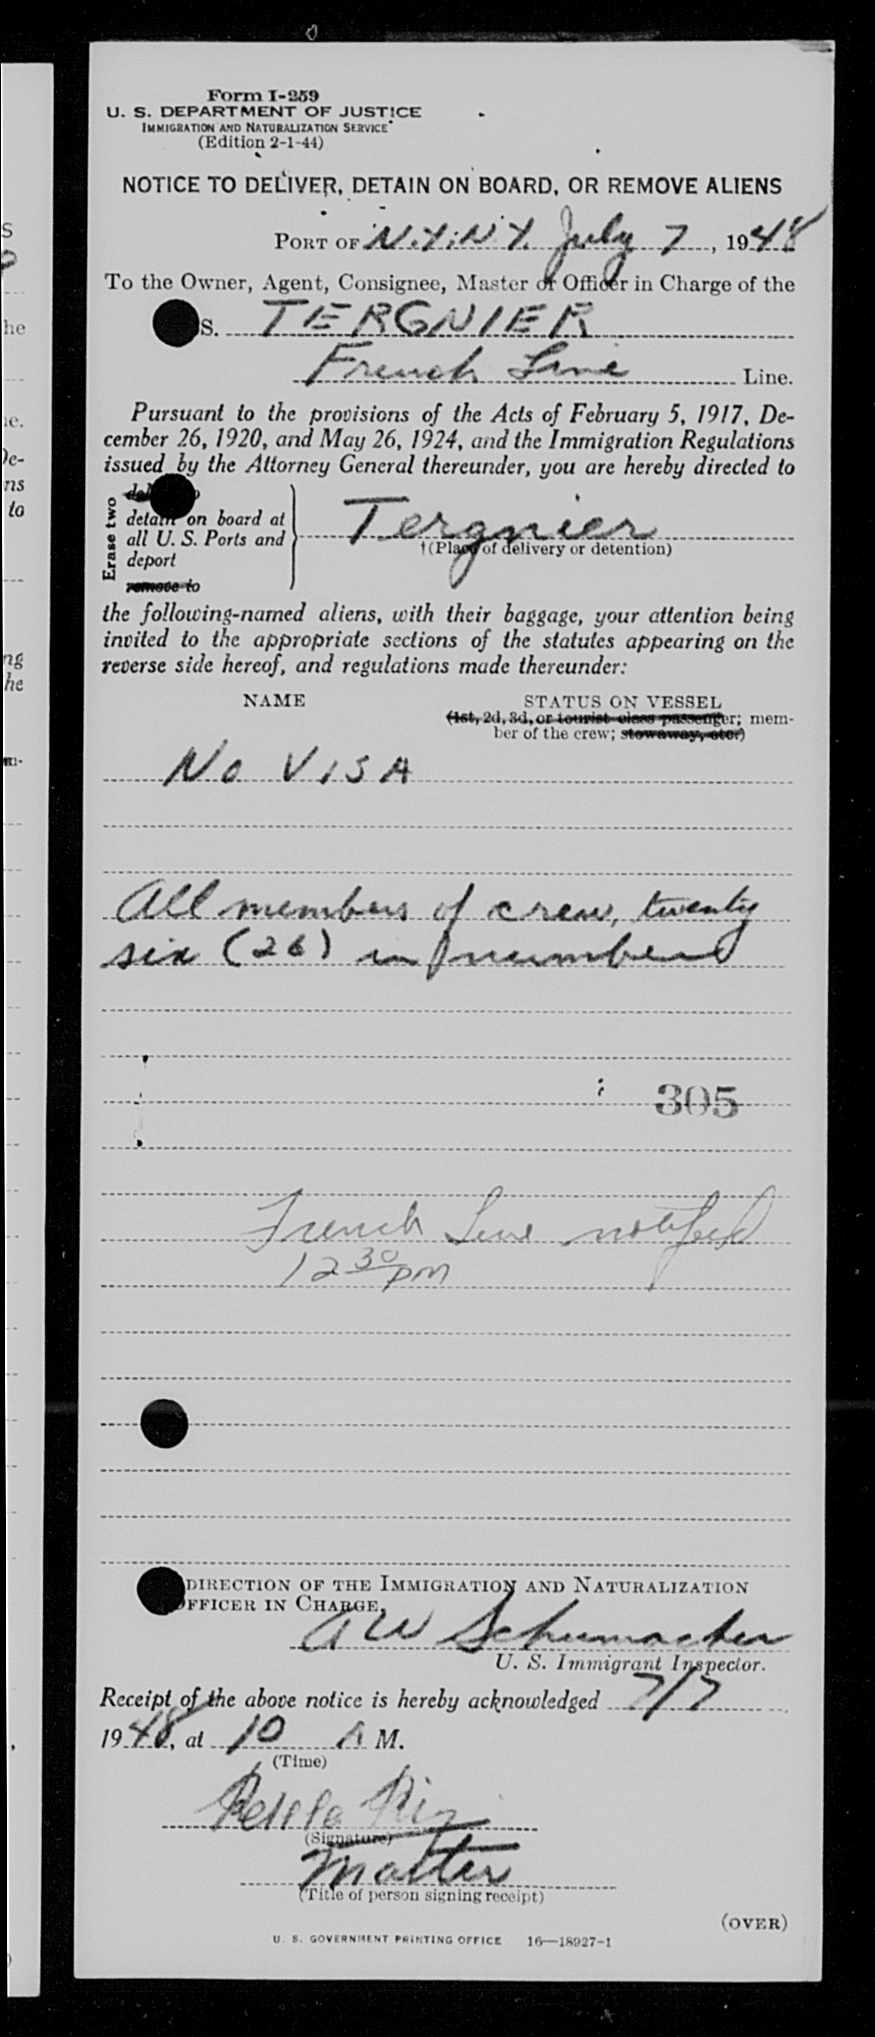 Form I-259
U. S. DEPARTMENT OF JUSTICE
IMMIGRATION AND NATURALIZATION SERVICE
(Edition 2-1-44)
NOTICE TO DELIVER, DETAIN ON BOARD, OR REMOVE ALIENS
PORT OF N.Y. N.Y. July 7, 1948
To the Owner, Agent, Consignee, Master or Officer in Charge of the
S. TERGNIER
French Line Line.
Pursuant to the provisions of the Acts of February 5, 1917, De-
cember 26, 1920, and May 26, 1924, and the Immigration Regulations
issued by the Attorney General thereunder, you are hereby directed to
Erase two
detain on board at
all U. S. Ports and
deport
remove to
Tergnier
†(Place of delivery or detention)
the following-named aliens, with their baggage, your attention being
invited to the appropriate sections of the statutes appearing on the
reverse side hereof, and regulations made thereunder:
NAME STATUS ON VESSEL
(1st, 2d, 3d, or tourist class passenger; mem-
ber of the crew; stowaway, etc.)
No VISA
All members of crew, twenty
six (26) in number
305
French Line notified
12 30 pm
DIRECTION OF THE IMMIGRATION AND NATURALIZATION
OFFICER IN CHARGE,
A W Schumacher
U. S. Immigrant Inspector.
Receipt of the above notice is hereby acknowledged 7/7
1948, at 10 A M.
(Time)
(Signature)
Master
(Title of person signing receipt)
(OVER)
U. S. GOVERNMENT PRINTING OFFICE 16—18927-1